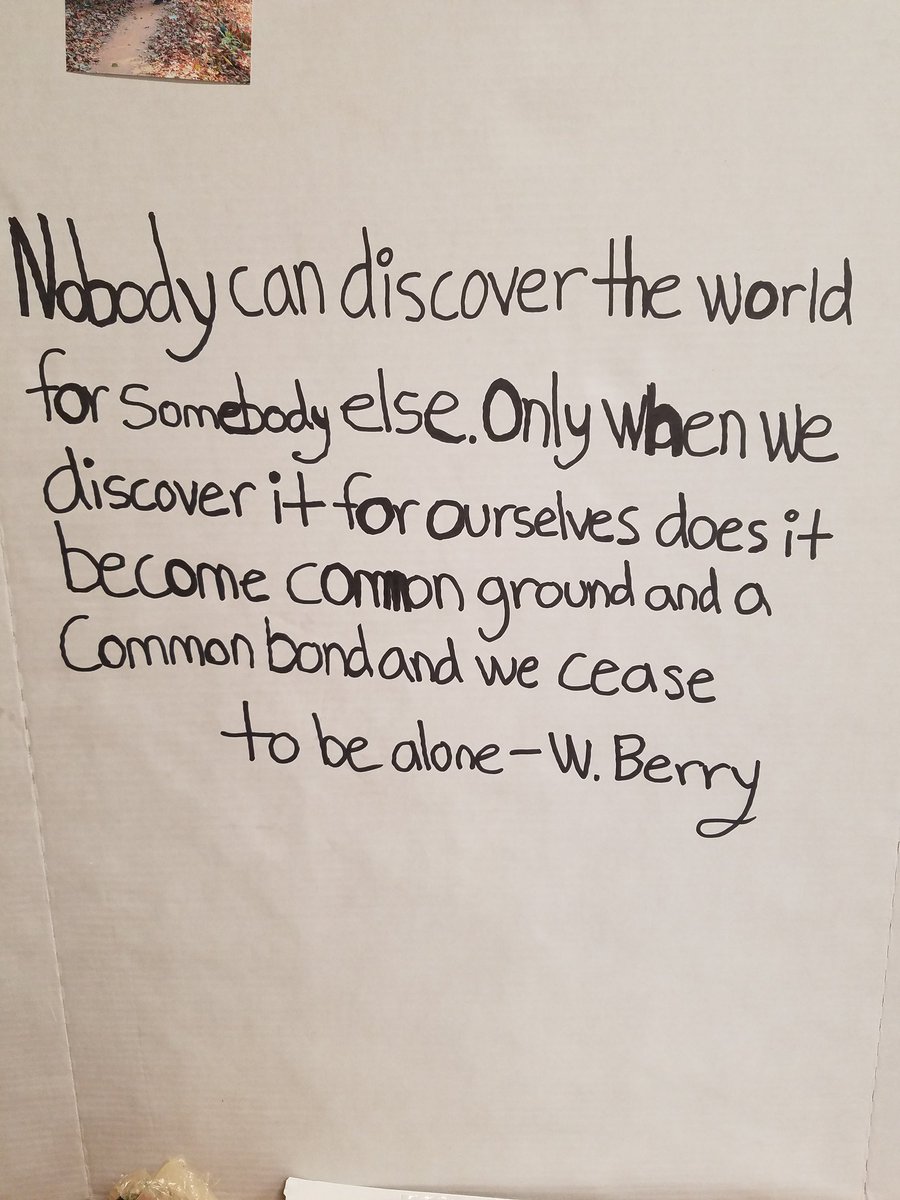 Nobody can discover the world
for somebody else. Only when we
discover it for ourselves does it
become common ground and a
Common bond and we cease
to be alone - W. Berry